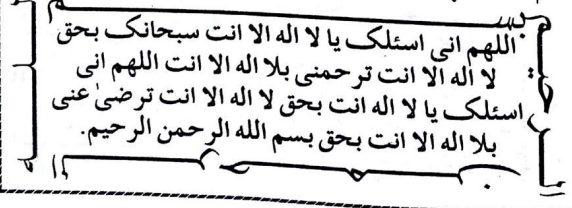 اللهم انی اسئلک یا لا اله الا انت سبحانک بحق
لا اله الا انت ترحمنی بلا اله الا انت اللهم انی
اسئلک یا لا اله انت بحق لا اله الا انت ترضیٰ عنی
بلا اله الا انت بحق بسم الله الرحمن الرحیم.